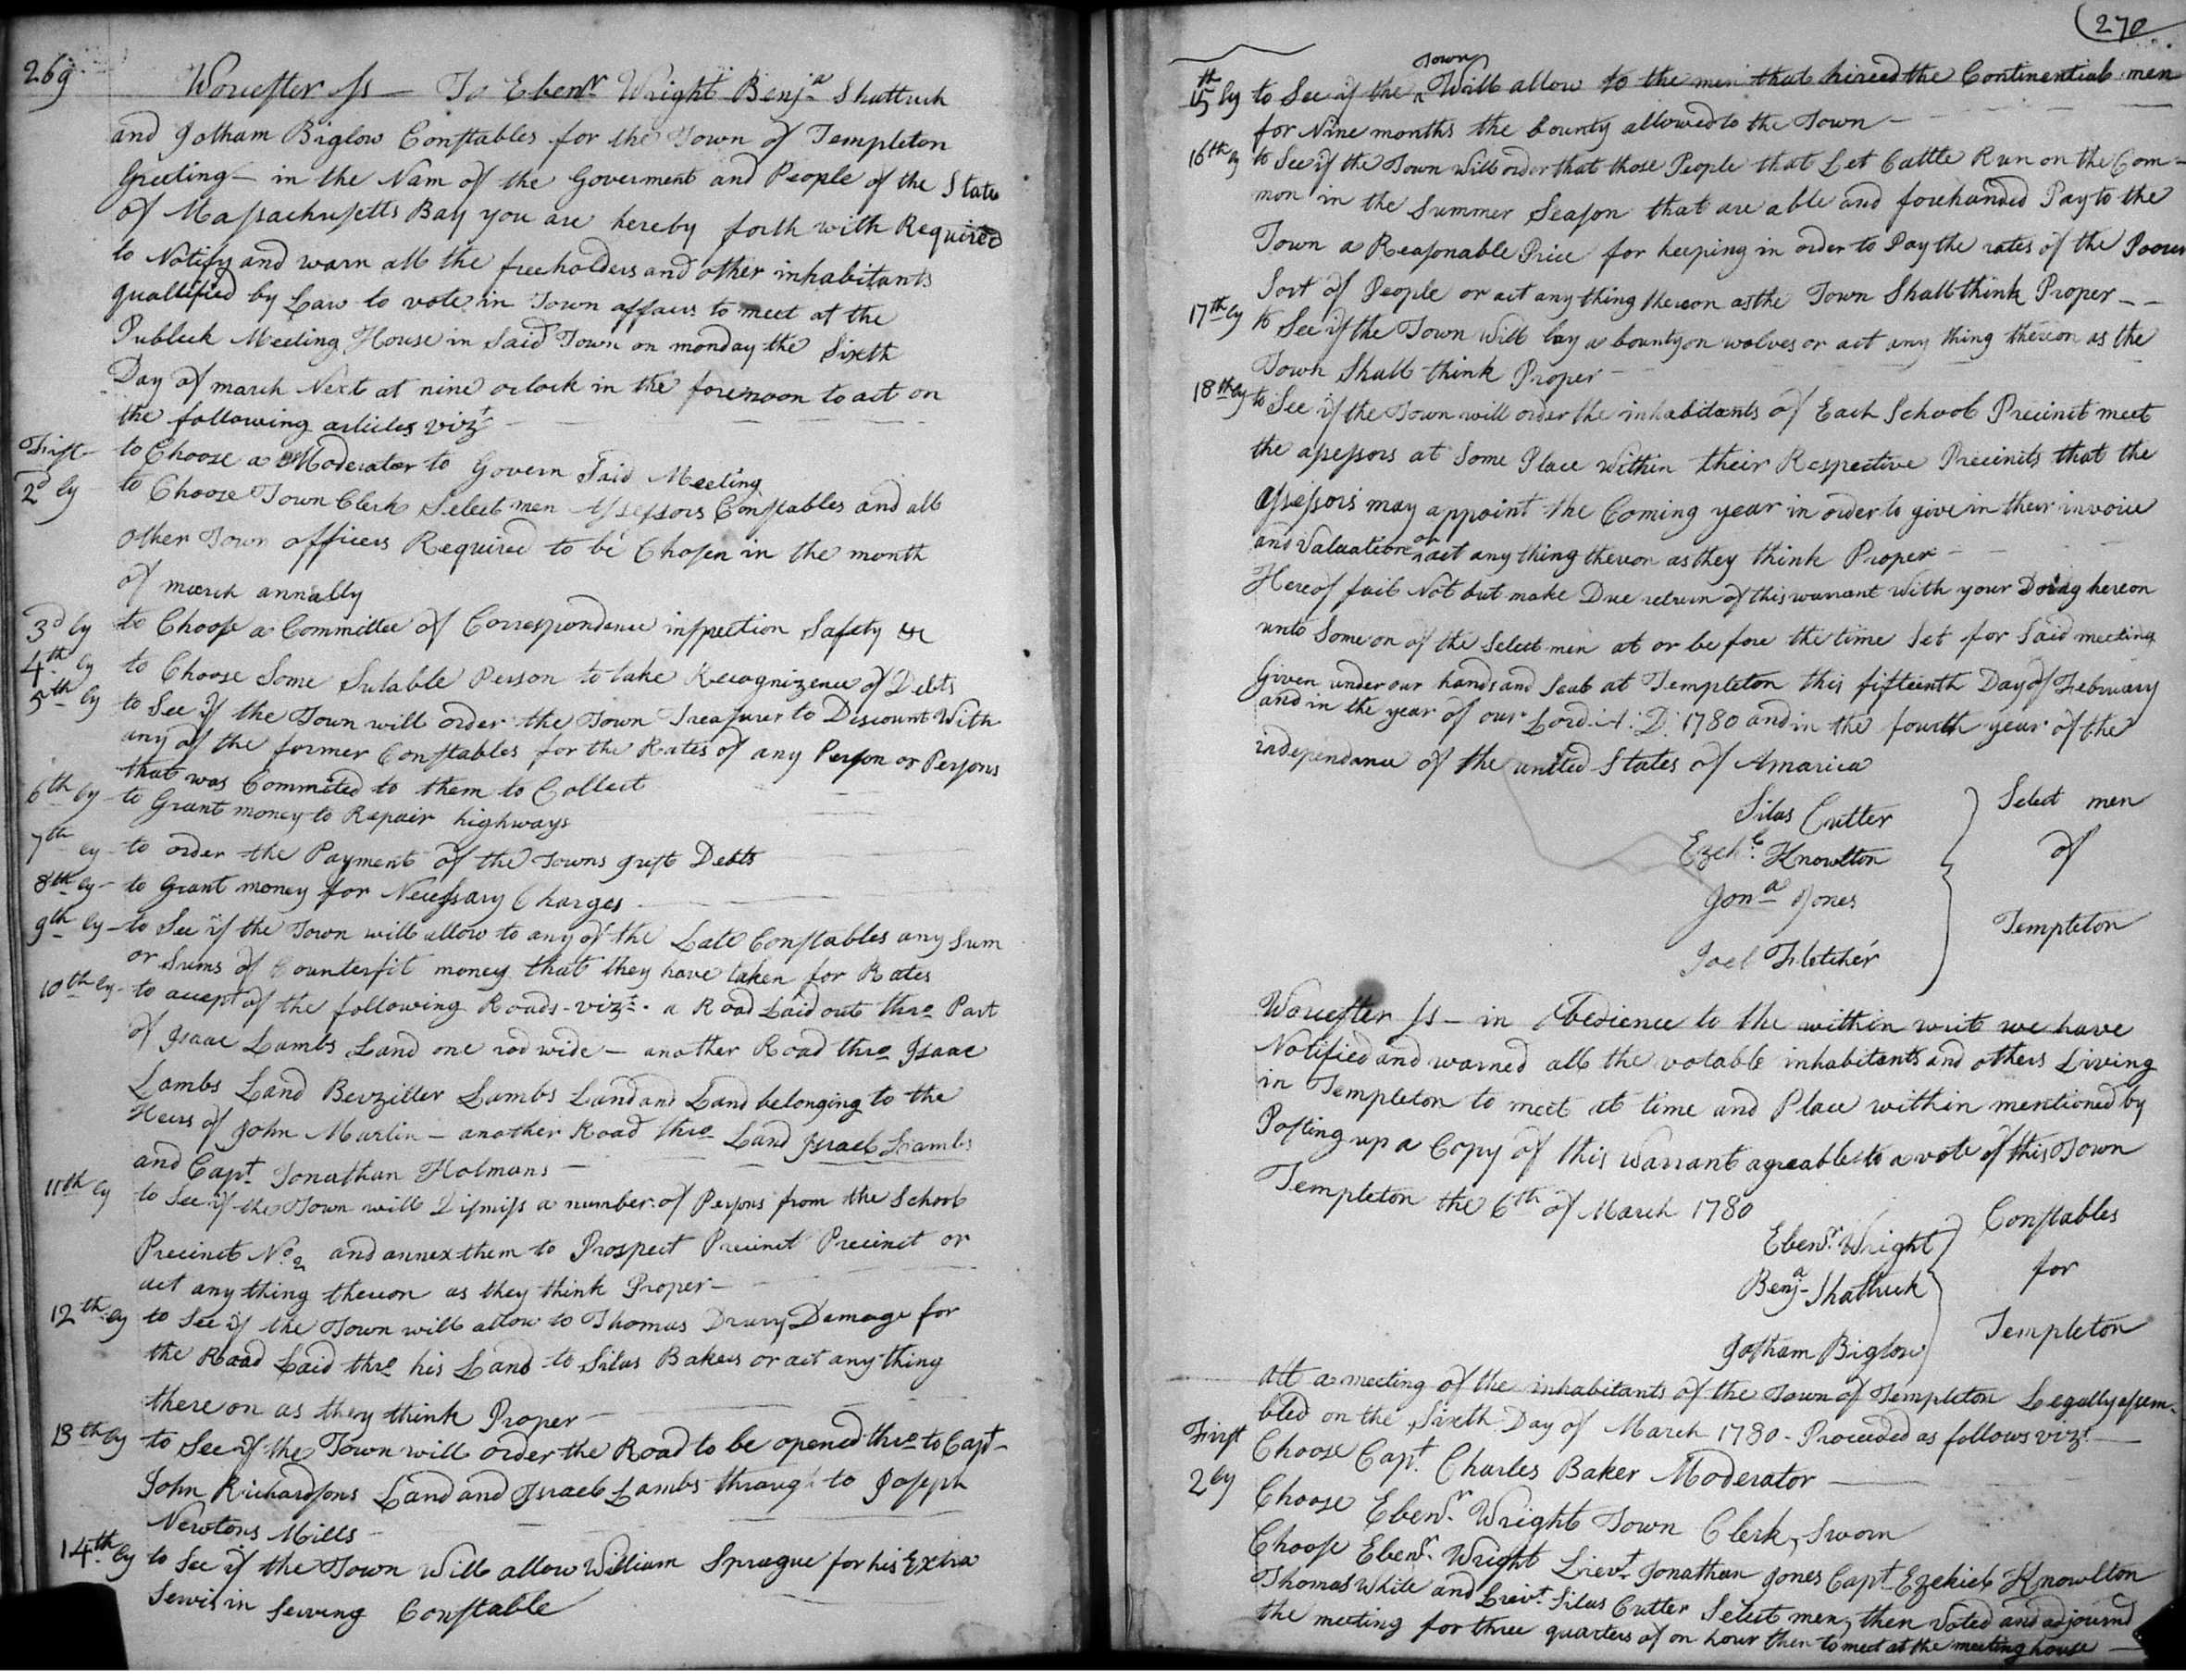 269
Worcester ss — To Ebenr. Wright Benja. Shattuck
and Jotham Biglow Constables for the Town of Templeton
Greeting — in the Nam of the Goverment and People of the State
of Massachusetts Bay you are hereby forth with Required
to Notify and warn all the freeholders and other inhabitants
quallified by Law to vote in Town affairs to meet at the
Publick Meeting House in Said Town on monday the Sixth
Day of march Next at nine oclock in the forenoon to act on
the following articles vizt
First — to Choose a Moderator to Govern Said Meeting
2d ly to Choose Town Clerk Select men Assessors Constables and all
other Town officers Required to be Chosen in the month
of march annally
3d ly to Choose a Committee of Correspondence inspection Safety &c
4th ly to Choose Some Sutable Person to take Recognizence of Debts
5th ly to See if the Town will order the Town Treasurer to Discount With
any of the former Constables for the Rates of any Person or Persons
that was Commited to them to Collect
6th ly to Grant money to Repair highways
7th ly to order the Payment of the Towns just Debts
8th ly to Grant money for Necessary Charges
9th ly to See if the Town will allow to any of the Late Constables any Sum
or Sums of Counterfit money that they have taken for Rates
10th ly to accept of the following Roads vizt. a Road Laid out thro Part
of Isaac Lambs Land one rod wide — another Road thro Isaac
Lambs Land Berziller Lambs Land and Land belonging to the
Heirs of John Martin — another Road thro Land Israel Lambs
and Capt. Jonathan Holmans —
11th ly to See if the Town will Dismiss a number of Persons from the School
Precinct No. 2 and annex them to Prospect Precinct Precinct or
act any thing thereon as they think Proper —
12th ly to See if the Town will allow to Thomas Drury Damage for
the Road Laid thro his Land to Silas Bakers or act any thing
there on as they think Proper —
13th ly to See if the Town will order the Road to be opened thro to Capt
John Richardsons Land and Israel Lambs through to Joseph
Newtons Mills —
14th ly to See if the Town Will allow William Sprague for his Extra
Servis in Serving Constable
270
15th ly to See if the Town Will allow to the men that hireed the Continential men
for Nine months the bounty allowed to the Town —
16th ly to See if the Town Will order that those People that Let Cattle Run on the Com-
mon in the Summer Season that are able and forehanded Pay to the
Town a Reasonable Price for keeping in order to Pay the rates of the Poorer
Sort of People or act any thing thereon as the Town Shall think Proper —
17th ly to See if the Town Will lay a bounty on wolves or act any thing thereon as the
Town Shall think Proper —
18th ly to See if the Town will order the inhabitants of Each School Precinct meet
the assessors at Some Place Within their Respective Precincts that the
assessors may appoint the Coming year in order to give in their invoice
and Valuation or act any thing thereon as they think Proper —
Hereof fail Not but make Due return of this warrant With your Doing hereon
unto Some on of the Select men at or before the time Set for Said meeting
Given under our hands and Seal at Templeton this fifteenth Day of February
and in the year of our Lord A: D: 1780 and in the fourth year of the
independance of the united States of Amarica
Silas Cutter
Ezekl. Knowlton
Jona Jones
Joel Fletcher
Select men
of
Templeton
Worcester ss — in Obedience to the within writ we have
Notified and warned all the votable inhabitants and others Living
in Templeton to meet at time and Place within mentioned by
Posting up a Copy of this Warrant agreable to a vote of this Town
Templeton the 6th of March 1780
Ebenr. Wright
Benja Shattuck
Jotham Biglow
Constables
for
Templeton
Att a meeting of the inhabitants of the Town of Templeton Legally assem-
bled on the Sixth Day of March 1780 - Proceeded as follows vizt. —
First Choose Capt. Charles Baker Moderator —
2ly Choose Ebenr. Wright Town Clerk, Sworn
Choose Ebenr. Wright Lievt Jonathan Jones Capt Ezekiel Knowlton
Thomas White and Lievt. Silas Cutter Select men, then Voted and adjournd
the meeting for three quarters of on hour then to meet at the meeting house —